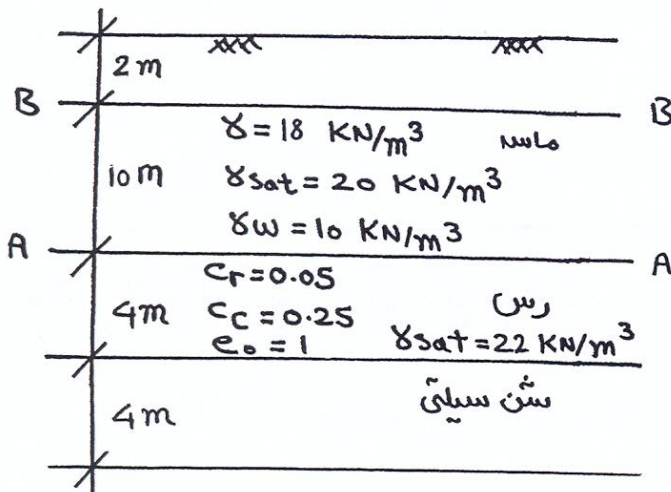 2m
B B
γ = 18 KN/m³ ماسه
10m γsat = 20 KN/m³
γw = 10 KN/m³
A A
Cr = 0.05
4m Cc = 0.25 رس
e₀ = 1 γsat = 22 KN/m³
4m شن سیلتی